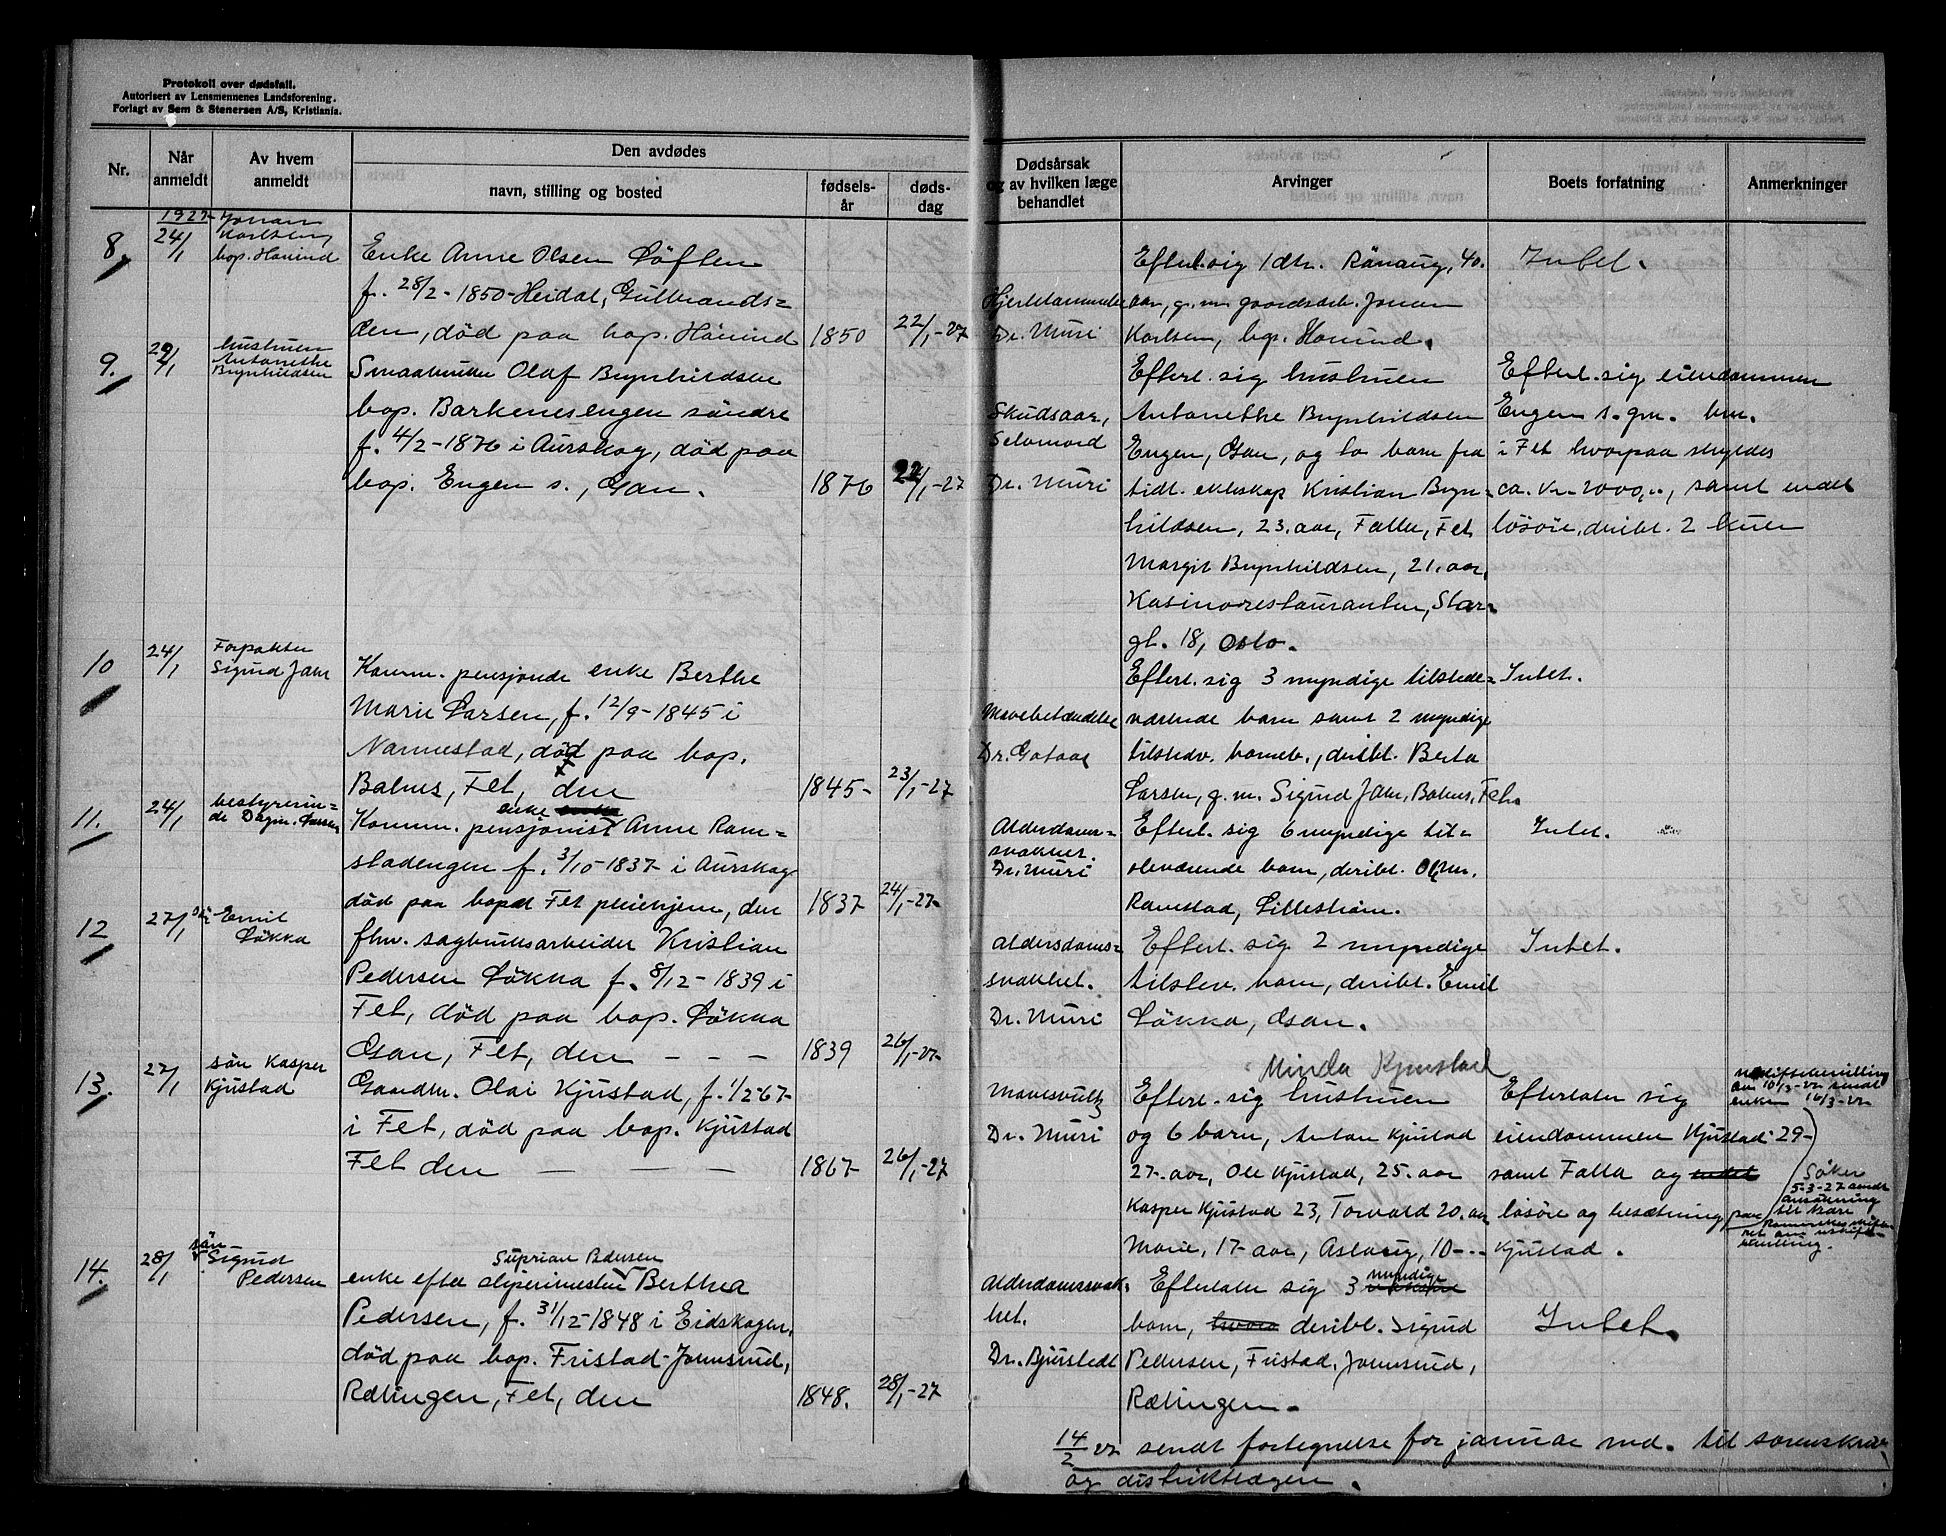 Protokoll over dødsfall.
Autorisert av Lensmennenes Landsforening.
Forlagt av Sem & Stenersen A/S, Kristiania.
Nr.
Når anmeldt
Av hvem anmeldt
Den avdødes
navn, stilling og bosted
fødsels-år
døds-dag
Dødsårsak og av hvilken læge behandlet
Arvinger
Boets forfatning
Anmerkninger
1927
8.
24/1
Johan
Karlsen,
bop. Hövind
Enke Anne Olsen Löften
f. 28/2-1850-Heidal, Gulbrands=
den, död paa bop. Hövind
1850
22/1-27
Hjertelammelse
Dr. Muri
Efterl. sig 1 dtr. Rönaug, 40.
aar, g.m. gaardsarb. Johan
Karlsen, bop. Hövind.
Intet.
9.
24/1
hustruen
Antonethe
Brynhildsen
Smaabruker Olaf Brynhildsen
bop. Barkenesengen söndre
f. 4/2-1876 i Aurskog, död paa
bop. Engen s., Gan.
1876
22/1-27
Skudsaar,
Selvmord
Dr. Muri
Efterl. sig hustruen
Antonethe Brynhildsen
Engen, Gan, og to barn fra
tidl. ekteskap Kristian Bryn=
hildsen, 23. aar, Falla, Fet
Margit Brynhildsen, 21. aar,
Kasinorestauranten, Stor-
gt. 18, Oslo.
Efterl. sig eiendommen
Engen s. gnr. bnr.
i Fet hvorpaa skyldes
ca. kr. 2000,-, samt endel
lösöre, deribl. 2 kuer
10
24/1
Forpakter
Sigurd Jahr
Komm. pensjonerte enke Berthe
Marie Larsen, f. 12/9-1845 i
Nannestad, död paa bop.
Balnes, Fet, den
1845-
23/1-27
Mavebetændelse
Dr. Gotaas
Efterl. sig 3 myndige tilstede=
værende barn samt 2 myndige
tilstedv. barneb., deribl. Berta
Larsen, g.m. Sigurd Jahr, Balnes, Fet.
Intet.
11.
24/1
bestyrerin=
de Dagm. Larsen
Komm. pensjonist enke Anne Ram=
stadengen f. 3/10-1837 i Aurskog
död paa bopæl Fet pleiehjem, den
1837
24/1-27
Alderdoms=
svakhet.
Dr. Muri
Efterl. sig 6 myndige til=
steværende barn, deribl.
Ramstad, Lilleström.
Intet.
12
27/1
Emil
Lökka
fhv. sagbruksarbeider Kristian
Pedersen Lökka f. 8/12-1839 i
Fet, död paa bop. Lökka
Gan, Fet, den - - -
1839
26/1-27
Aldersdoms=
svakhet.
Dr. Muri
Efterl. sig 2 myndige
tilstev. barn, deribl. Emil
Lökka, Gan.
Intet.
13.
27/1
sön Kasper
Kjustad
Gaardbr. Olai Kjustad, f. 1/2 67-
i Fet, död paa bop. Kjustad
Fet den - - -
1867-
26/1-27
Mavesvulst
Dr. Muri
Minda Kjustad
Efterl. sig hustruen
og 6 barn, Anton Kjustad
27. aar, Ole Kjustad, 25. aar
Kasper Kjustad 23, Torvald 20. aar
Marie, 17-aar, Aslaug, 10-..
Efterlater sig
eiendommen Kjustad 29-
samt Falla og endel
lösöre og besætning paa
Kjustad.
uskiftebevilling
av 10/3-27 sendt
enken 16/3-27
Söker
5-3-27 sendt
ansökning
til Nedre
Romerikes skifte-
ret om uskifte-
bevilling.
14.
28/1
sön
Sigurd
Pedersen
Syprian Pedersen
enke efter sliperimester Berthea
Pedersen, f. 31/12-1848 i Eidskogen,
död paa bop. Fristad-Jomsrud,
Rælingen, Fet, den
1848.
28/1-27
Alderdomssvak-
het.
Dr. Bjurstedt
Efterlater sig 3 myndige
barn, hvora deribl. Sigurd
Pedersen, Fristad, Jomsrud,
Rælingen.
Intet.
14/2 27 sendt fortegnelse for januar md. til sorenskriv.
og distriktslægen.